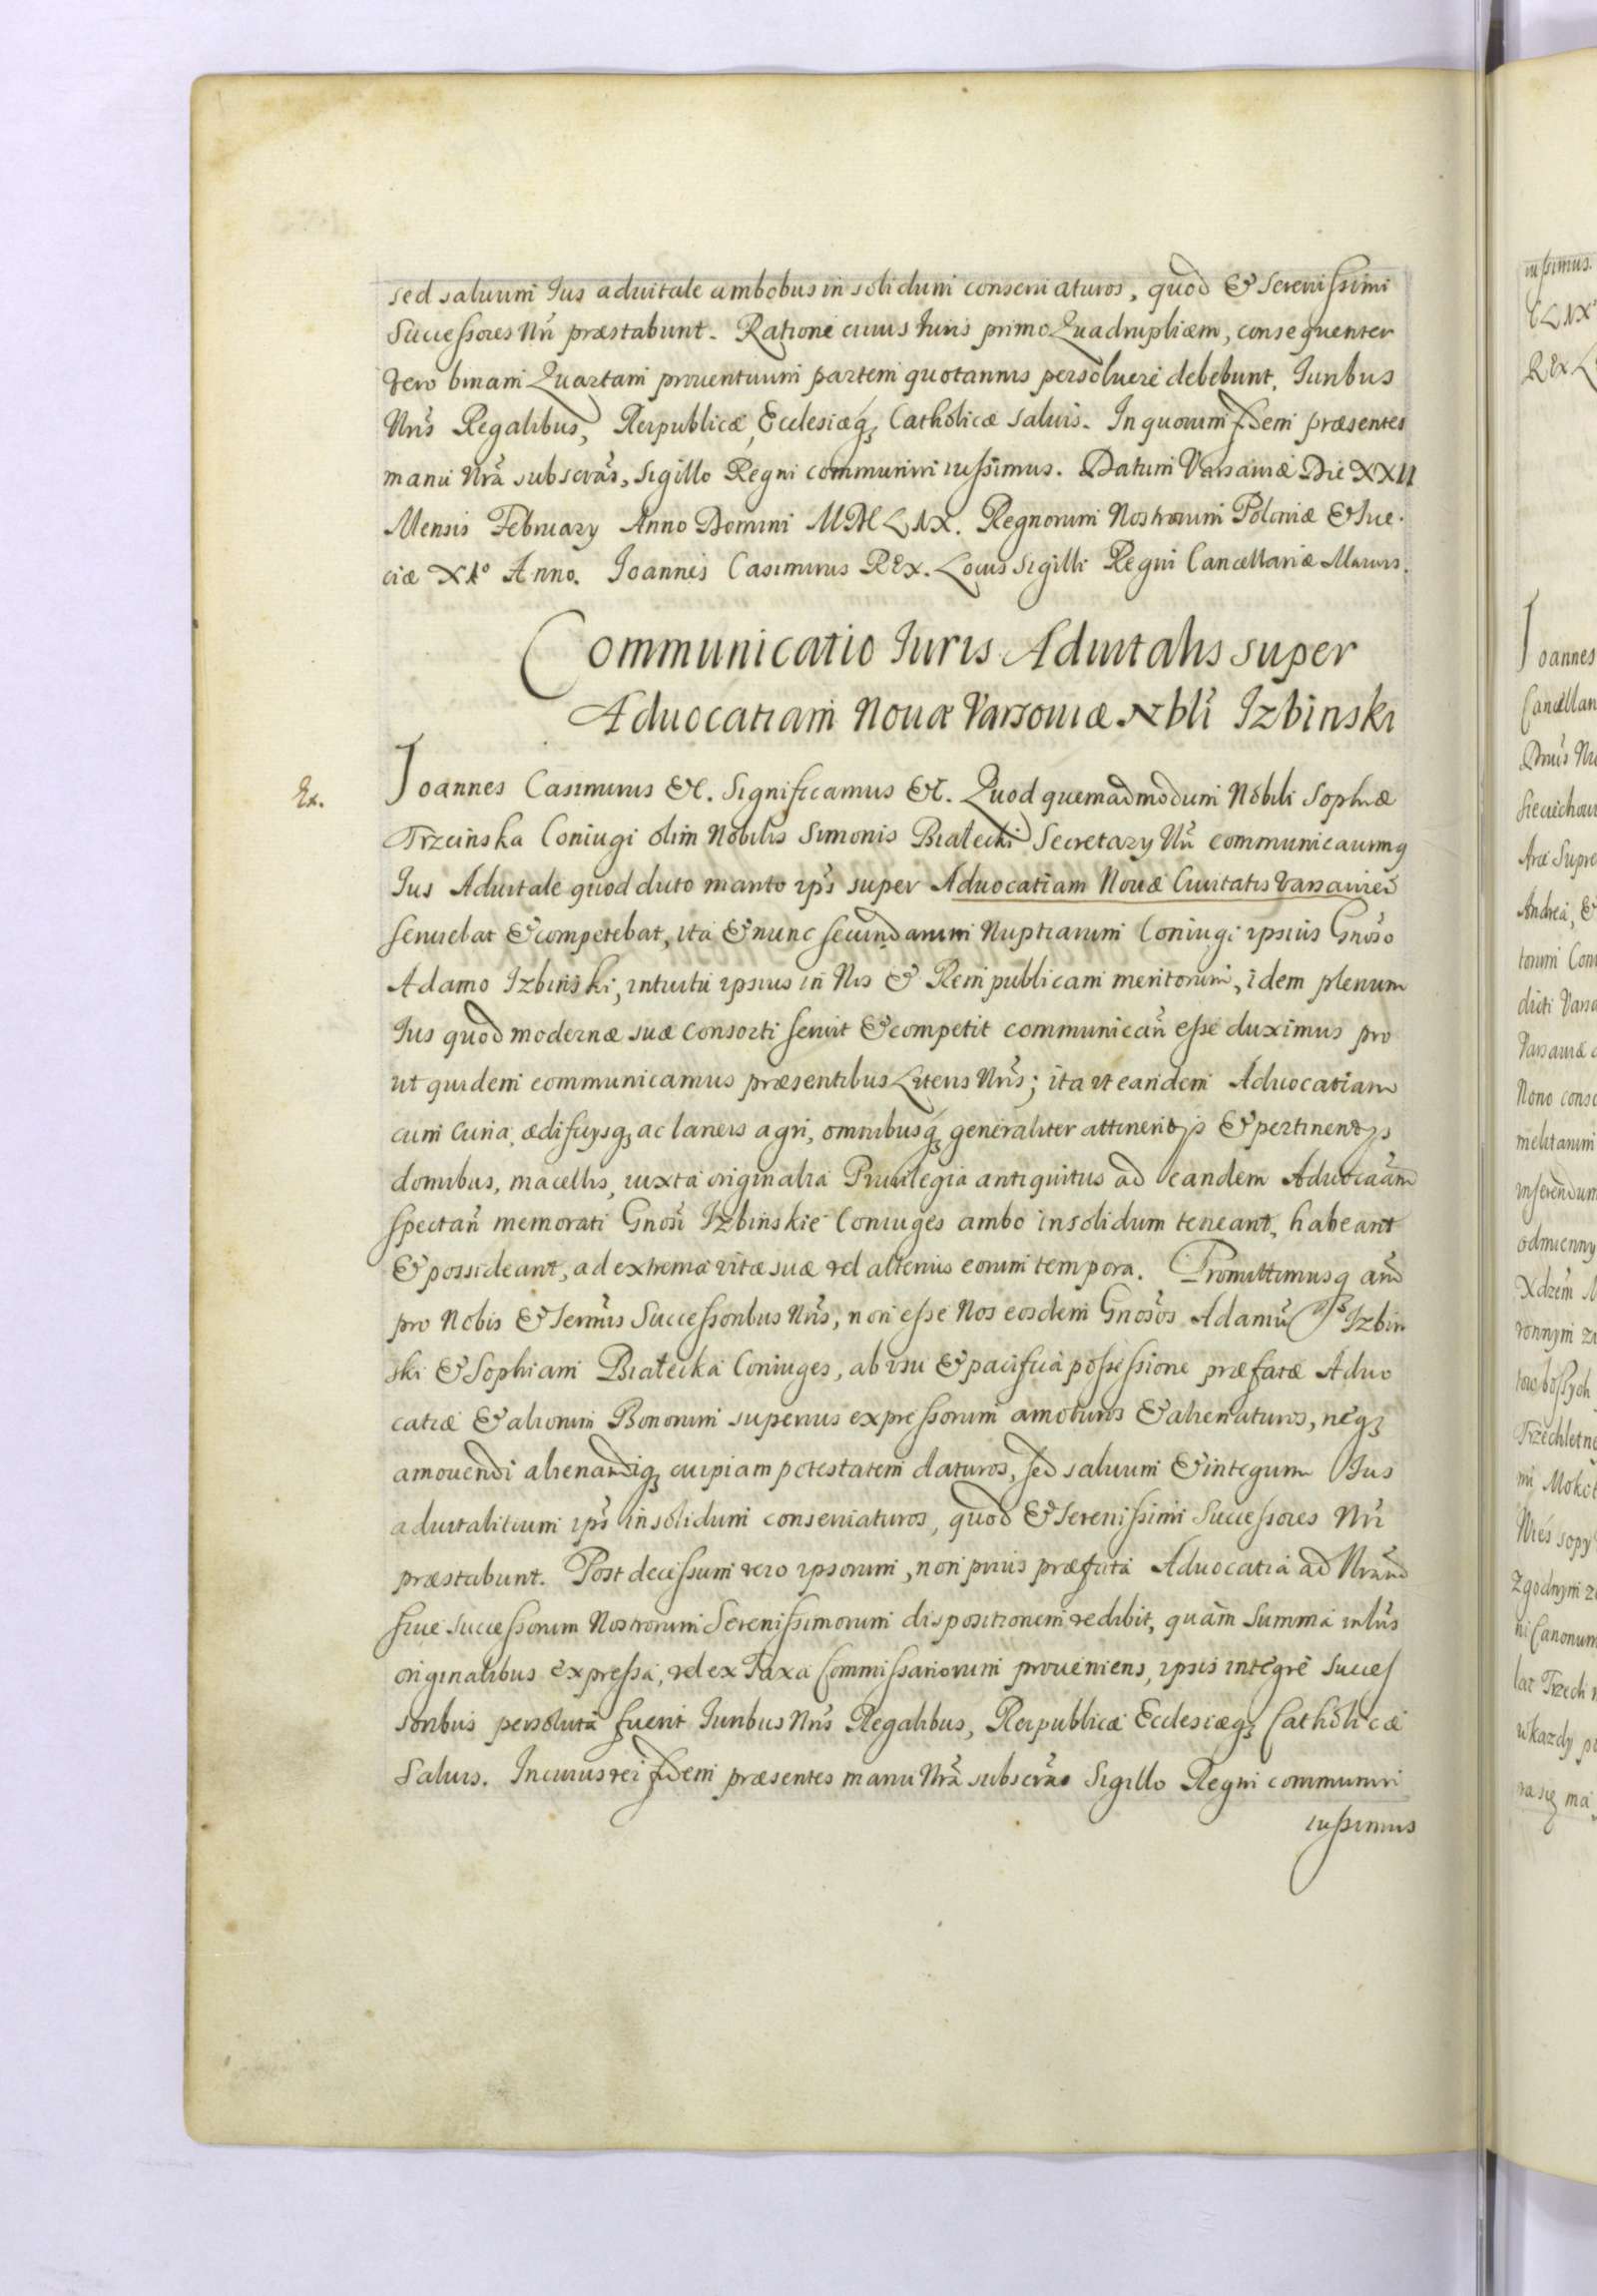 sed saluum Ius aduitale ambobus in solidum conseruaturos, quod & Serenissimi
Successores Nri præstabunt. Ratione cuius Iuris primo Quadruplicem, consequenter
vero binam Quartam prouentuum partem quotannis persoluere debebunt, Iuribus
Nris Regalibus, Reipublicæ, Ecclesiæq; Catholicæ saluis. In quorum fidem præsentes
manu Nra subscras, Sigillo Regni communiri iussimus. Datum Varsauiæ Die XXII
Mensis February Anno Domini MDCLIX. Regnorum Nostrorum Poloniæ & Sue-
ciæ XIo Anno. Joannes Casimirus REX. Locus Sigilli Regni Cancellariæ Maioris.
Communicatio Iuris Aduitalis super
Aduocatiam Nouæ Varsouiæ Nbli Izbinski
Ex.
Joannes Casimirus &c. Significamus &c. Quod quemadmodum Nobili Sophiæ
Trzcinska Coniugi olim Nobilis Simonis Białecki Secretary Nri communicauimq
Ius Aduitale quod dicto marito ips super Aduocatiam Nouæ Ciuitatis Varsauien
seruiebat & competebat, ita & nunc secundarum Nuptiarum Coniugi ipsius Gnoso
Adamo Izbinski, intuitu ipsius in Nos & Rempublicam meritorum, idem plenum
Ius quod modernæ suæ consorti seruit & competit communican esse duximus pro
ut quidem communicamus præsentibus Literis Nris; ita vt eandem Aduocatiam
cum Curia, ædificysq; ac laneis agri, omnibusq; generaliter attinentys & pertinentys
domibus, macellis, iuxta originalia Priuilegia antiquitus ad eandem Aduocaam
spectan memorati Gnosi Izbinskie Coniuges ambo insolidum teneant, habeant
& possideant, ad extrema vitæ suæ vel alterius eorum tempora. Promittimusq and
pro Nobis & Sermis Successoribus Nris, non esse Nos eosdem Gnosos Adamu Izbin
ski & Sophiam Białecka Coniuges, ab vsu & pacifica possessione præfatæ Aduo
catiæ & aliorum Bonorum superius expressorum amoturos & alienaturos, neq;
amouendi alienandiq; cuipiam potestatem daturos, sed saluum & integum Ius
aduitalitium ips insolidum conseruaturos, quod & Serenissimi Successores Nri
præstabunt. Post decessum vero ipsorum, non prius præfata Aduocatia ad Nram
siue successorum Nostrorum Serenissimorum dispositionem redibit, quàm Summa inlris
originalibus expressa, vel ex Taxa Commissariorum proueniens, ipsis integrè Succes
soribus persoluta fuerit Iuribus Nris Regalibus, Reipublicæ Ecclesiæq; Catholicæ
Saluis. Incuius rei fidem præsentes manu Nra subscras Sigillo Regni communiri
iussimus
iussimus.
Joannes